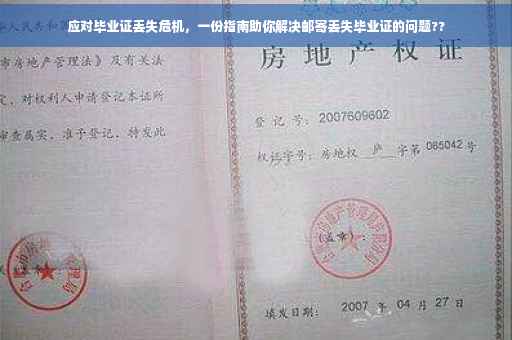 应对毕业证丢失危机，一份指南助你解决邮寄丢失毕业证的问题??
市房地产管理法》及有关法
定，对权利人申请登记本证所
审查属实，准予登记，特发此
房地产权证
登记号：2007609602
权证字号：房地权 庐 字第 065042 号
（盖章）：
填发日期：2007 年 04 月 27 日